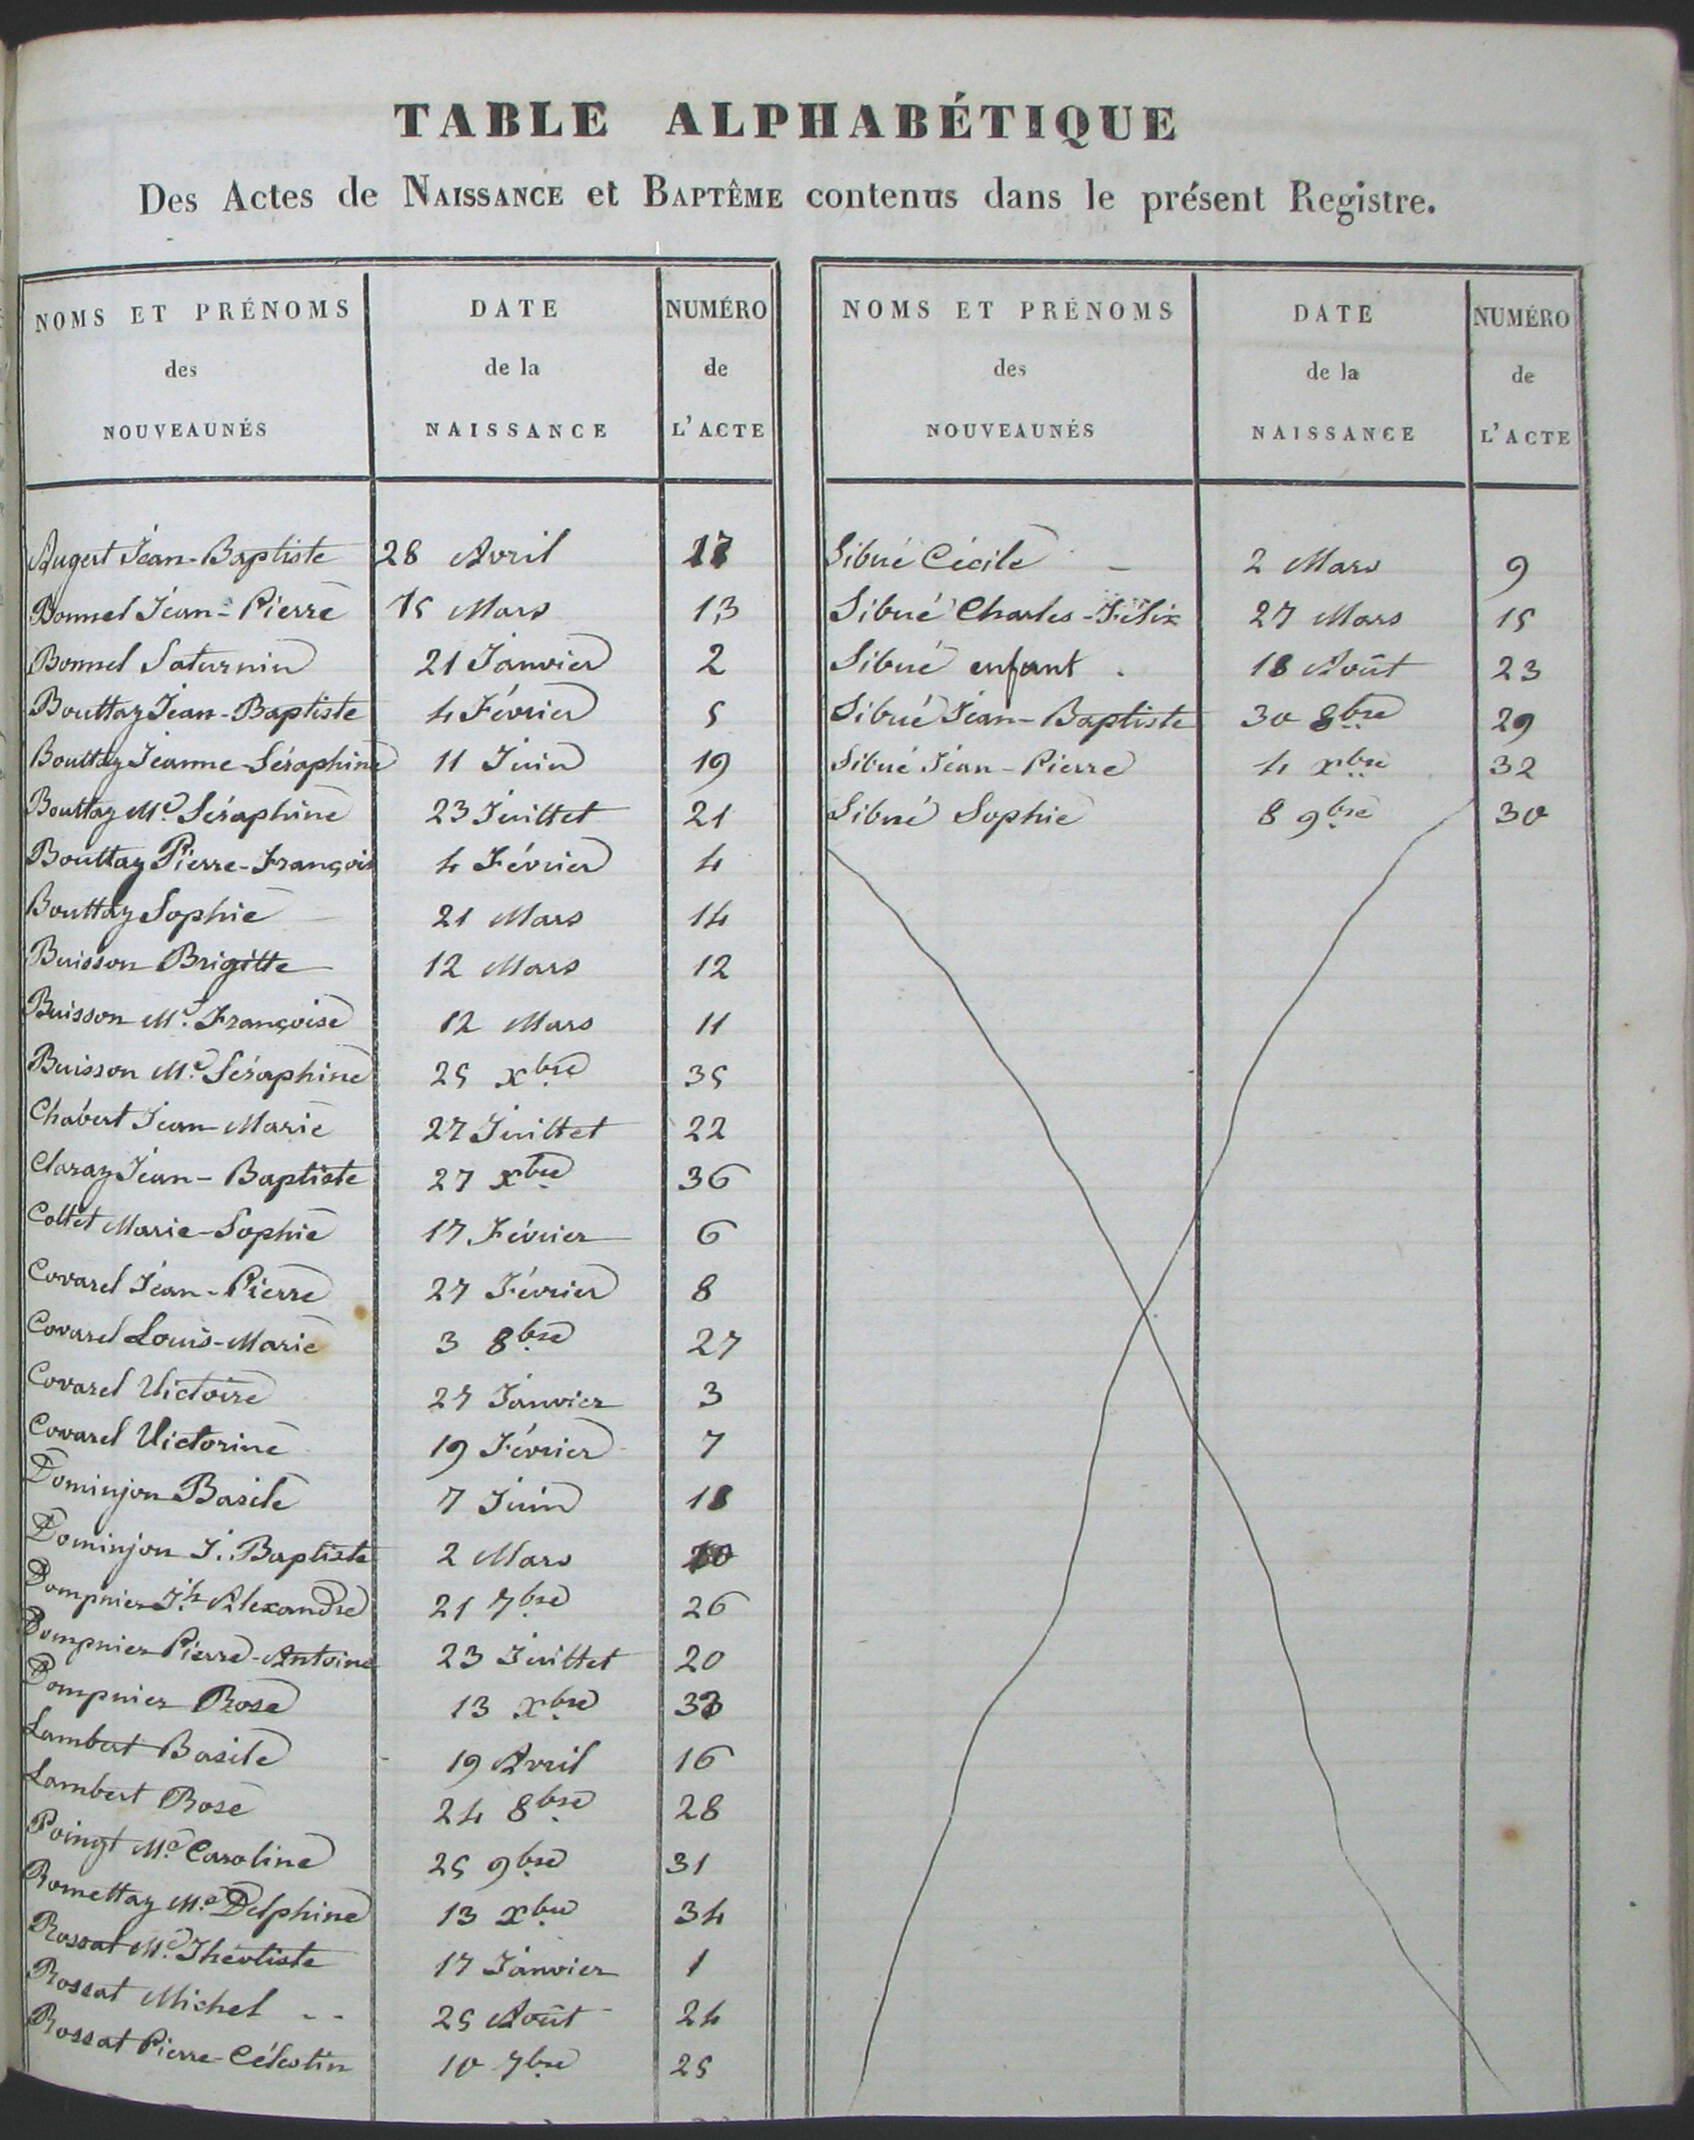 TABLE ALPHABÉTIQUE
Des Actes de NAISSANCE et BAPTÊME contenus dans le présent Registre.
NOMS ET PRÉNOMS des NOUVEAUNÉS | DATE de la NAISSANCE | NUMÉRO de L'ACTE
Augert Jean-Baptiste 28 Avril 17
Bonnel Jean-Pierre 15 Mars 13
Bonnel Saturnin 21 Janvier 2
Bouttaz Jean-Baptiste 4 Février 5
Bouttaz Jeanne-Séraphine 11 Juin 19
Bouttaz Me Séraphine 23 Juillet 21
Bouttaz Pierre-François 4 Février 4
Bouttaz Sophie 21 Mars 14
Buisson Brigitte 12 Mars 12
Buisson Me Françoise 12 Mars 11
Buisson Me Séraphine 25 xbre 35
Chabert Jean-Marie 27 Juillet 22
Claraz Jean-Baptiste 27 xbre 36
Collet Marie-Sophie 17 Février 6
Covarel Jean-Pierre 27 Février 8
Covarel Louis-Marie 3 8bre 27
Covarel Victoire 27 Janvier 3
Covarel Victorine 19 Février 7
Dominjon Basile 7 Juin 18
Dominjon J. Baptiste 2 Mars 10
Dompnier Jh Alexandre 21 7bre 26
Dompnier Pierre-Antoine 23 Juillet 20
Dompnier Rose 13 xbre 33
Lambert Basile 19 Avril 16
Lambert Rose 24 8bre 28
Poingt Me Caroline 25 9bre 31
Romettaz Me Delphine 13 xbre 34
Rossat Me Théotiste 17 Janvier 1
Rossat Michel 25 Août 24
Rossat Pierre-Célestin 10 7bre 25
NOMS ET PRÉNOMS des NOUVEAUNÉS | DATE de la NAISSANCE | NUMÉRO de L'ACTE
Sibué Cécile 2 Mars 9
Sibué Charles-Félix 27 Mars 15
Sibué enfant 18 Août 23
Sibué Jean-Baptiste 30 8bre 29
Sibué Jean-Pierre 4 xbre 32
Sibué Sophie 8 9bre 30